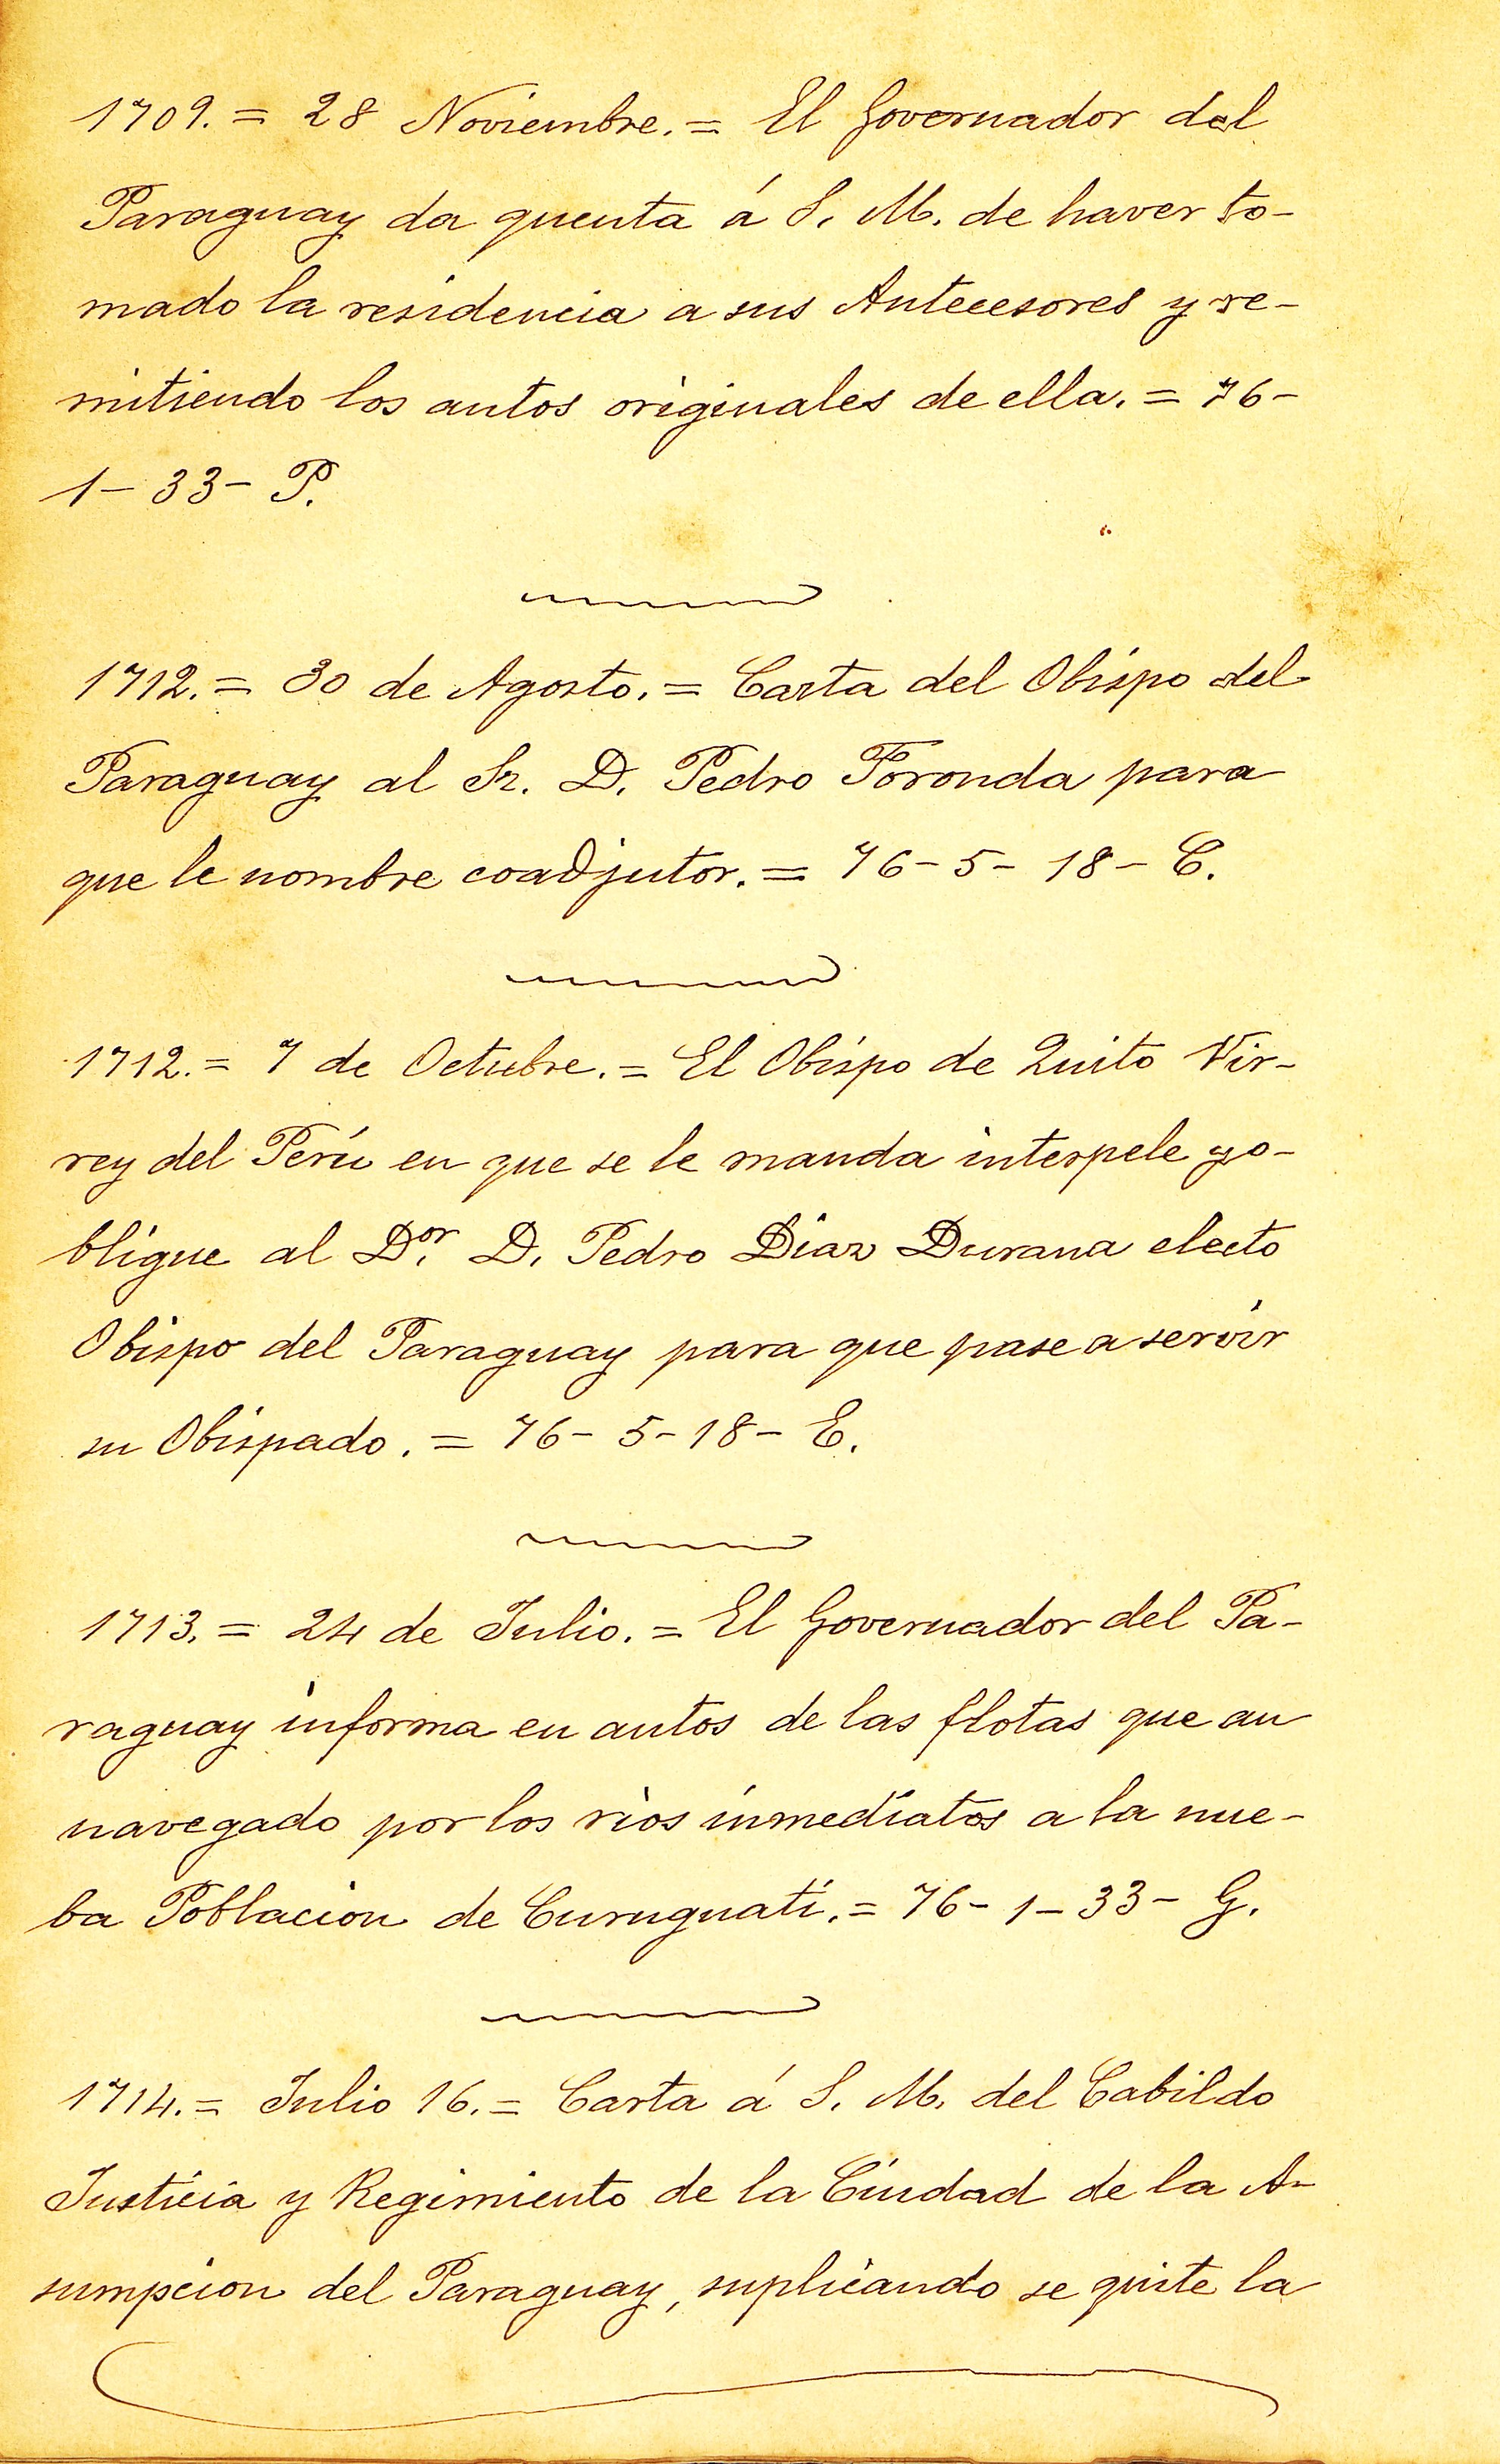 1709. = 28 Noviembre. = El Governador del
Paraguay da quenta á S. M. de haver to-
mado la residencia a sus Antecesores y re-
mitiendo los autos originales de ella. = 76-
1- 33- P.
1712. = 30 de Agosto. = Carta del Obispo del
Paraguay al Sr. D. Pedro Foronda para
que le nombre coadjutor. = 76- 5- 18- C.
1712. = 7 de Octubre. = El Obispo de Quito Vir-
rey del Perú en que se le manda interpele yo-
bligue al Dor. D. Pedro Diaz Durana electo
Obispo del Paraguay para que pase a servir
su Obispado. = 76- 5- 18- E.
1713. = 24 de Julio. = El Governador del Pa-
raguay informa en autos de las flotas que an
navegado por los rios inmediatos a la nue-
ba Poblacion de Curuguati. = 76- 1- 33- G.
1714. = Julio 16. = Carta á S. M. del Cabildo
Justicia y Regimiento de la Ciudad de la A-
sumpcion del Paraguay, suplicando se quite la